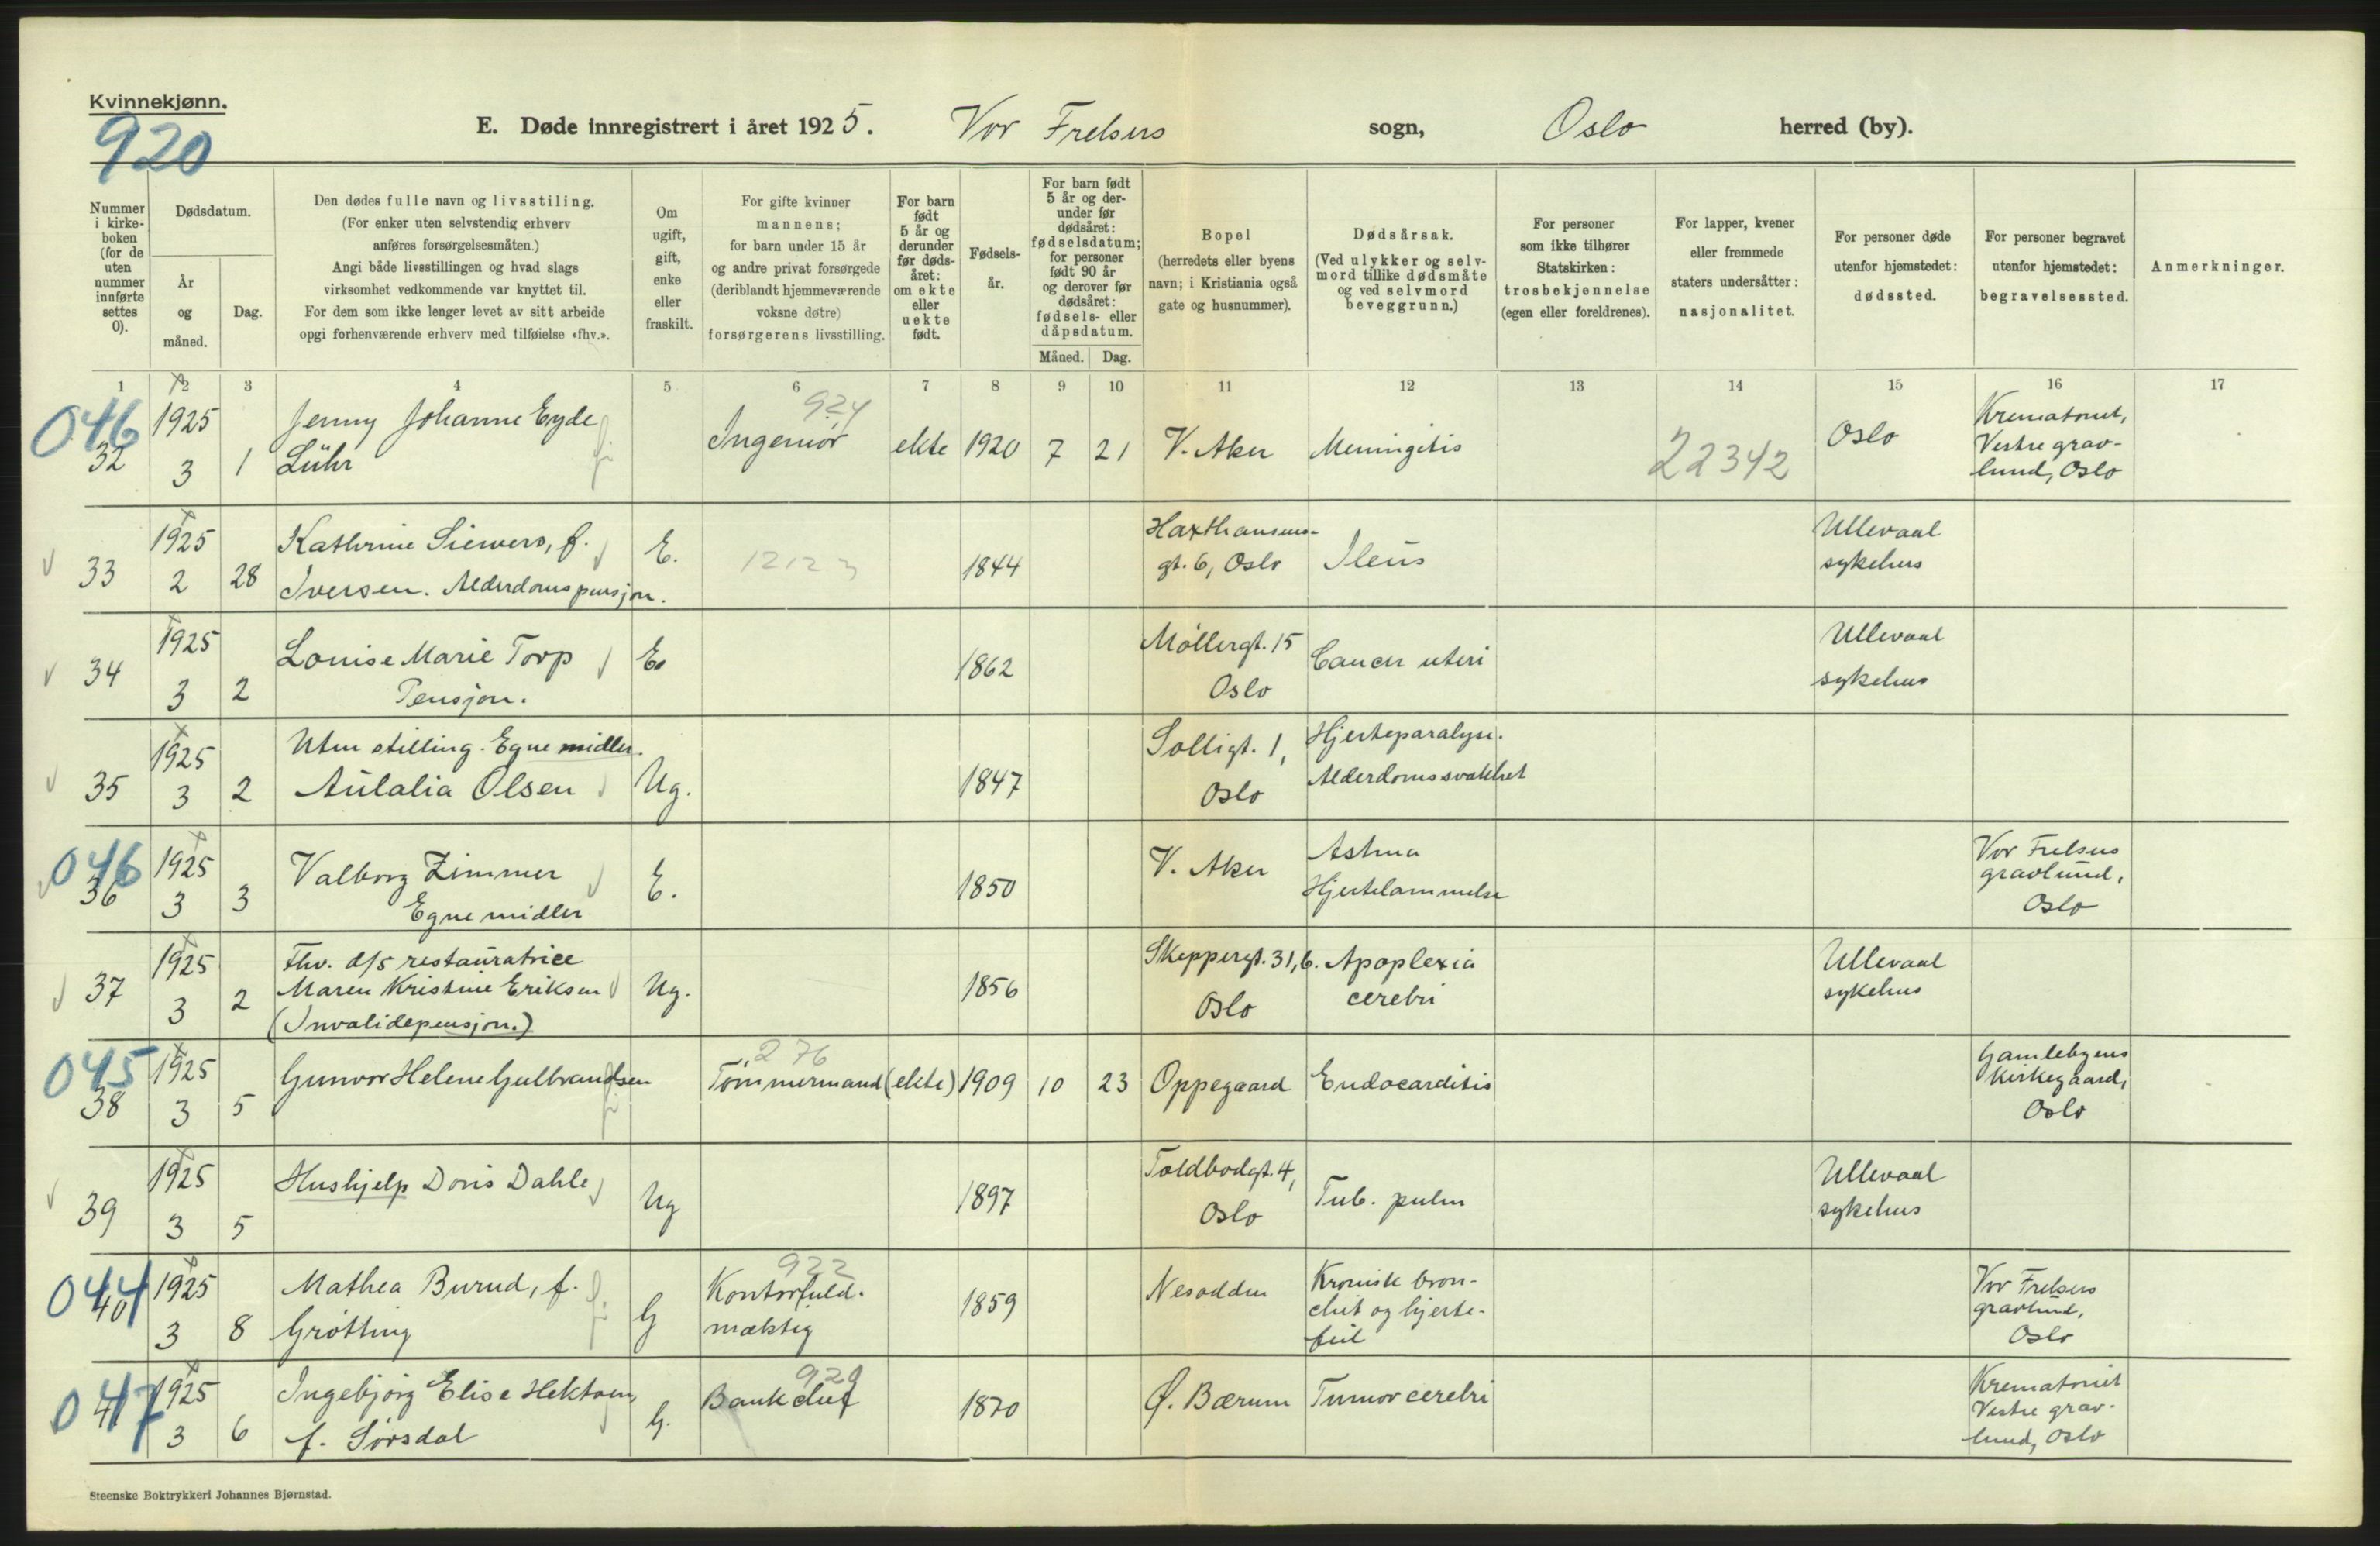 Kvinnekjønn.
920
E. Døde innregistrert i året 1925. Vor Frelsers sogn, Oslo herred (by).
Nummer i kirke-boken (for de uten nummer innførte settes 0).
Dødsdatum.
År og måned.
Dag.
Den dødes fulle navn og livsstilling.
(For enker uten selvstendig erhverv
anføres forsørgelsesmåten.)
Angi både livsstillingen og hvad slags
virksomhet vedkommende var knyttet til.
For dem som ikke lenger levet av sitt arbeide
opgi forhenværende erhverv med tilføielse «fhv.».
Om ugift, gift, enke eller fraskilt.
For gifte kvinner
mannens;
for barn under 15 år
og andre privat forsørgede
(deriblandt hjemmeværende
voksne døtre)
forsørgerens livsstilling.
For barn født 5 år og derunder før døds-året: om ekte eller uekte født.
Fødsels-år.
For barn født 5 år og der-under før dødsåret: fødselsdatum; for personer født 90 år og derover før dødsåret: fødsels- eller dåpsdatum.
Måned. Dag.
Bopel
(herredets eller byens
navn; i Kristiania også
gate og husnummer).
Dødsårsak.
(Ved ulykker og selv-
mord tillike dødsmåte
og ved selvmord
beveggrunn.)
For personer
som ikke tilhører
Statskirken:
trosbekjennelse
(egen eller foreldrenes).
For lapper, kvener
eller fremmede
staters undersåtter:
nasjonalitet.
For personer døde
utenfor hjemstedet:
dødssted.
For personer begravet
utenfor hjemstedet:
begravelsessted.
Anmerkninger.
1 2 3 4 5 6 7 8 9 10 11 12 13 14 15 16 17
046
32 1925 3 1
Jenny Johanne Eyde
Lühr
924
Ingeniør ekte 1920 7 21 V. Aker Meningitis 22342 Oslo
Krematoriet,
Vestre grav-
lund, Oslo
33 1925 2 28
Kathrine Siewers, f.
Iversen. Alderdomspensjon.
E. 12123 1844
Haxthausens-
gt. 6, Oslo
Ileus
Ullevaal
sykehus
34 1925 3 2
Louise Marie Torp
Pensjon.
E. 1862
Møllergt. 15
Oslo
Cancer uteri
Ullevaal
sykehus
35 1925 3 2
Uten stilling. Egne midler.
Aulalia Olsen
Ug. 1847
Solligt. 1,
Oslo
Hjerteparalyse.
Alderdomssvakhet
046
36 1925 3 3
Valborg Zimmer
Egne midler
E. 1850 V. Aker
Astma
Hjertelammelse
Vor Frelsers
gravlund,
Oslo
37 1925 3 2
Fhv. d/s restauratrice
Maren Kristine Eriksen
(Invalidepensjon.)
Ug. 1856
Skippergt. 31, b.
Oslo
Apoplexia
cerebri
Ullevaal
sykehus
045
38 1925 3 5
Gunvor Helene Gulbrandsen
276
Tømmermand (ekte) 1909 10 23 Oppegaard Endocarditis
Gamlebyens
kirkegaard,
Oslo
39 1925 3 5
Hushjelp Doris Dahle
Ug 1897
Toldbodgt. 4,
Oslo
Tub. pulm
Ullevaal
sykehus
044
40 1925 3 8
Mathea Burud, f.
Grøtting
G
922
Kontorfuld-
mæktig
1859 Nesodden
Kronisk bron-
chit og hjerte-
feil
Vor Frelsers
gravlund,
Oslo
047
41 1925 3 6
Ingebjørg Elise Hektoen,
f. Sørsdal
G.
929
Bankchef
1870 Ø. Bærum Tumor cerebri
Krematoriet
Vestre grav-
lund, Oslo
Steenske Boktrykkeri Johannes Bjørnstad.